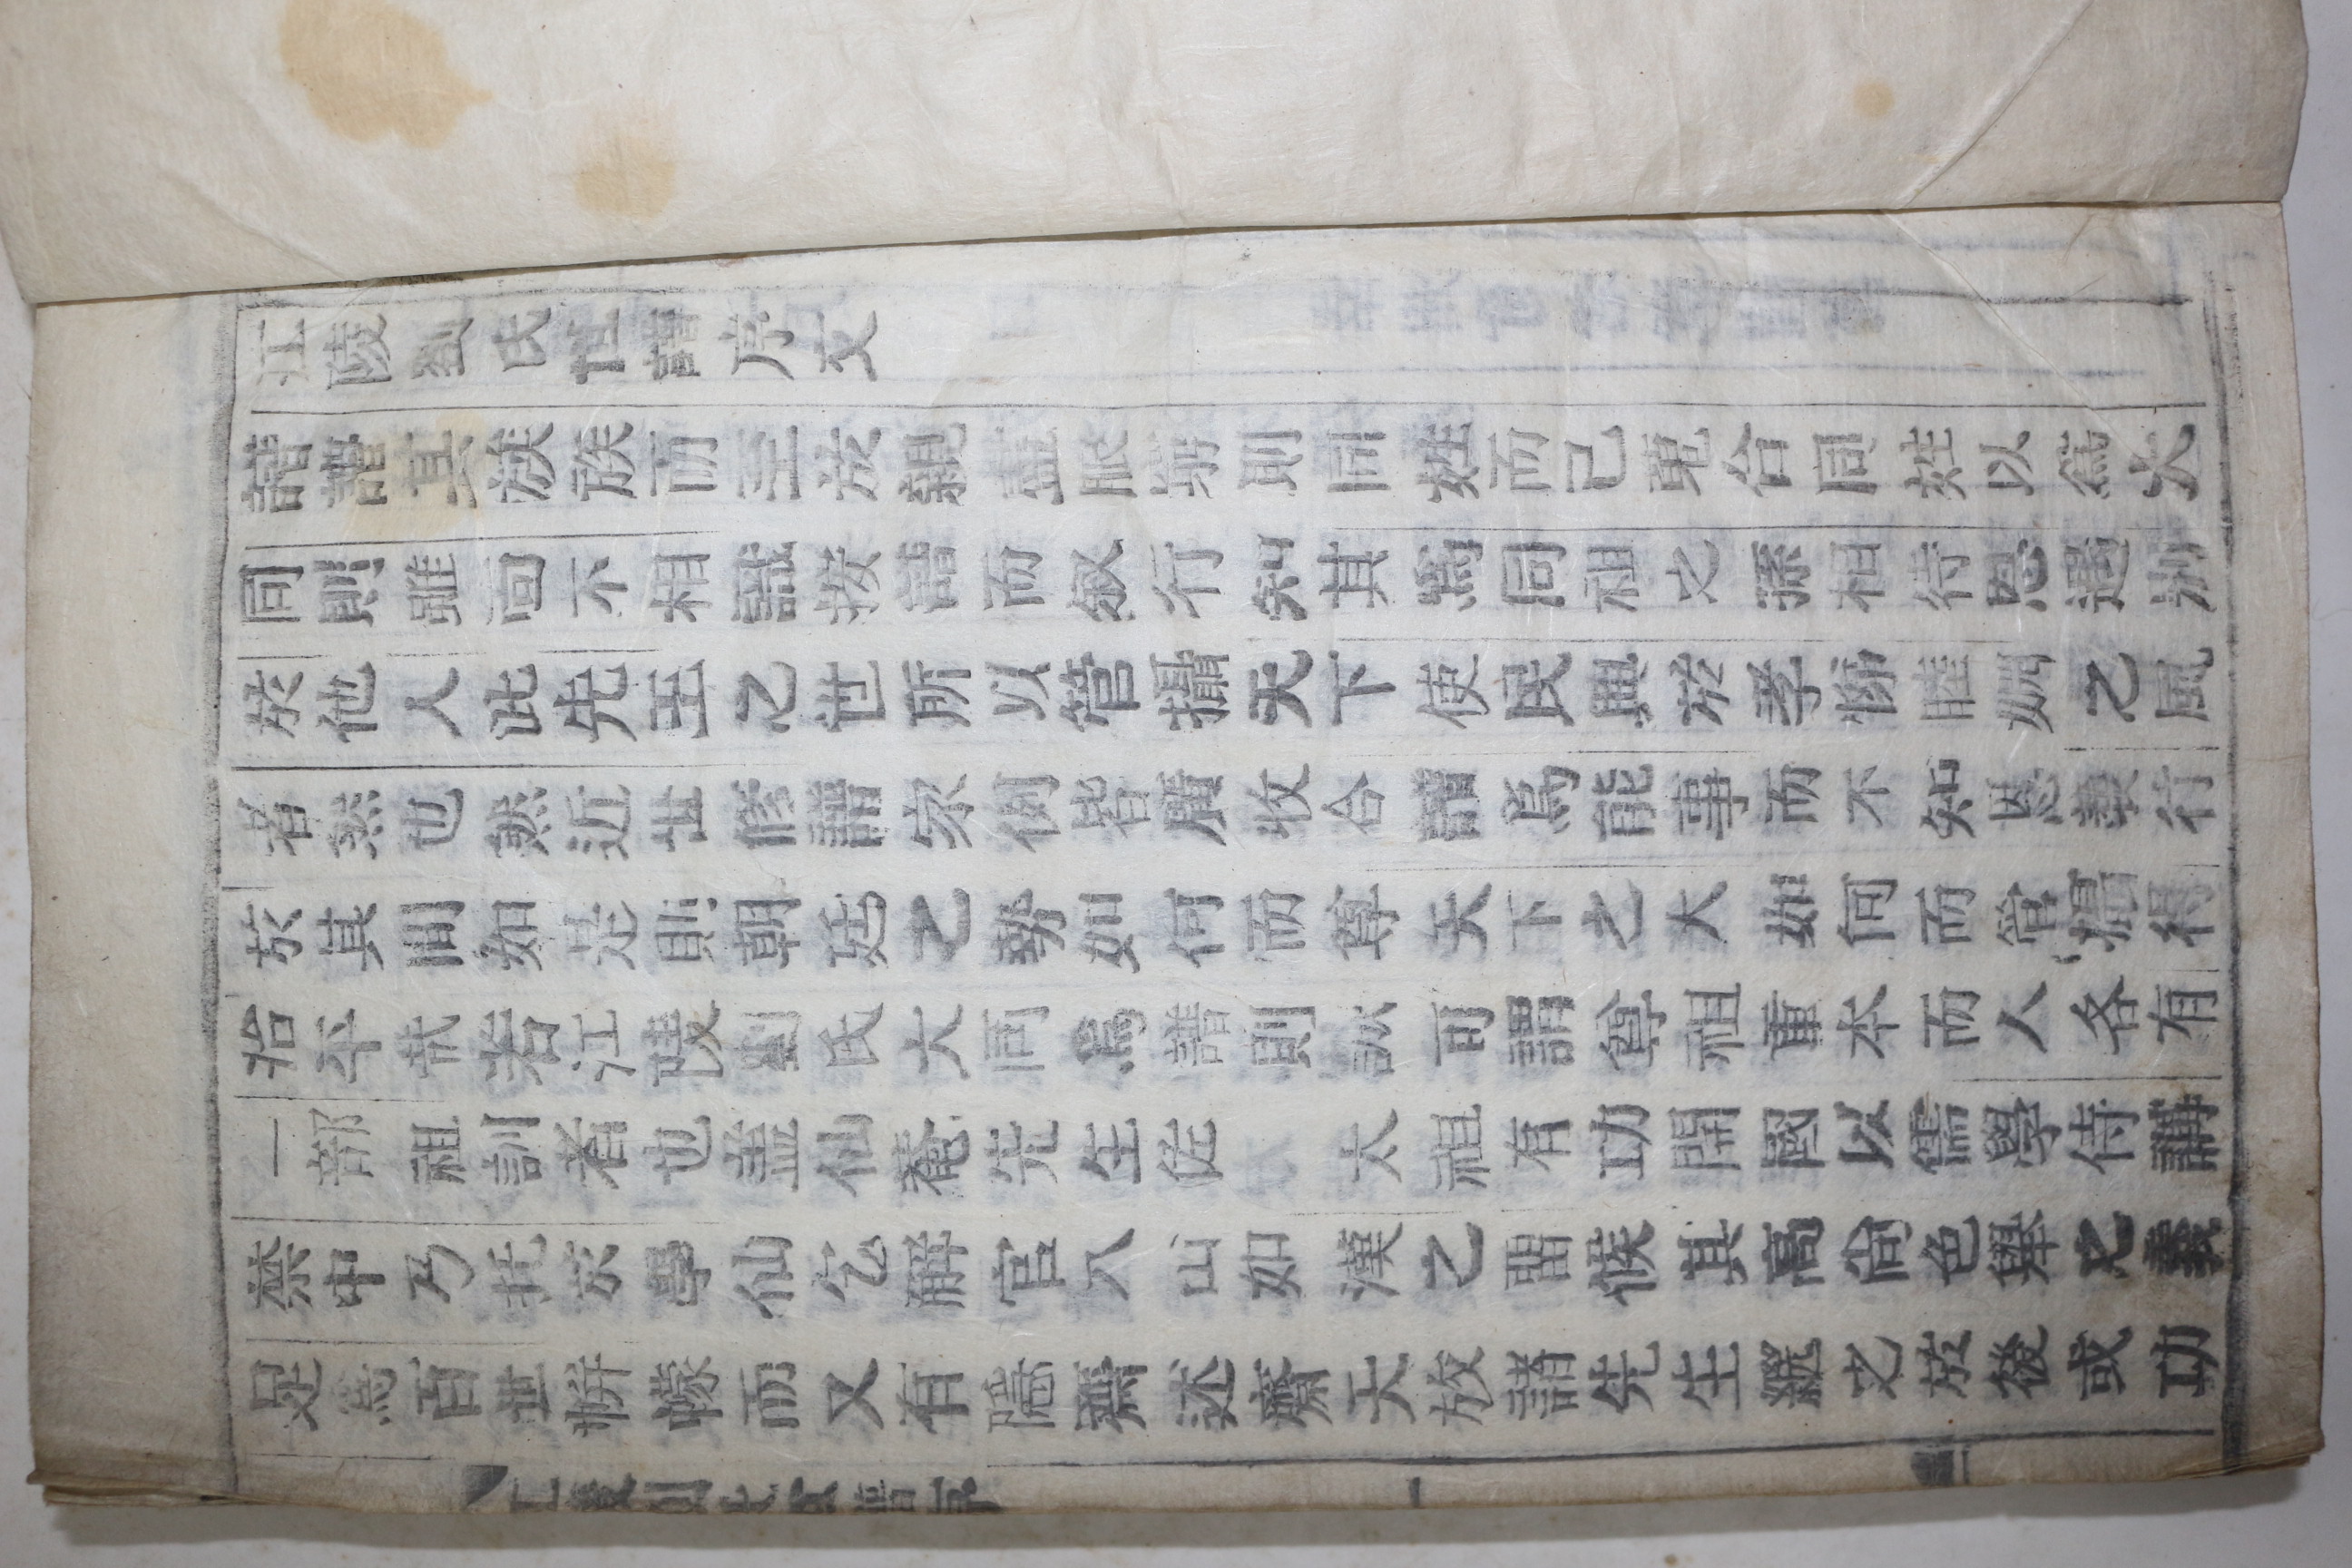 江陵劉氏世譜序文
譜譜其族族而至於親盡服窮則同姓而已苑合同姓以爲大
同則雖面不相識按譜而叙行知其爲同祖之孫相待恩遇別
於他人此先王之世所以管攝天下使民興於孝悌睦婣之風
者然也然近世修譜家例皆廣收合譜爲能事而不知恩義行
於其間如是則朝廷之勢如何而尊天下之大如何而管攝得
治平哉若江陵劉氏大同爲譜則誠可謂尊祖重本而人各有
一部祖訓者也盖仙菴先生佐 太祖有功開國以儒學侍講
禁中乃托於學仙乞解官入山如漢之畱候其高尙色擧之義
足爲百世帡幪而又有隱齋述齋天放諸先生繼之於後或功
江陵劉氏世譜序 一